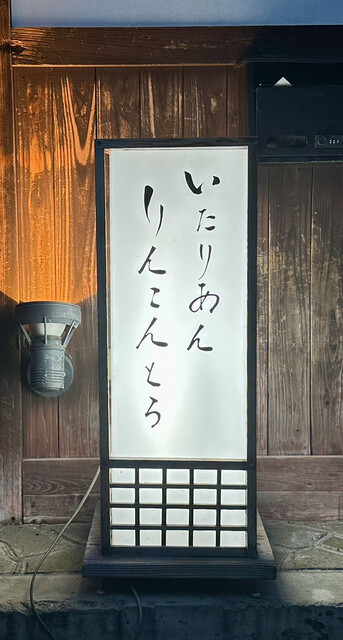 いたりあん
りんこんとろ